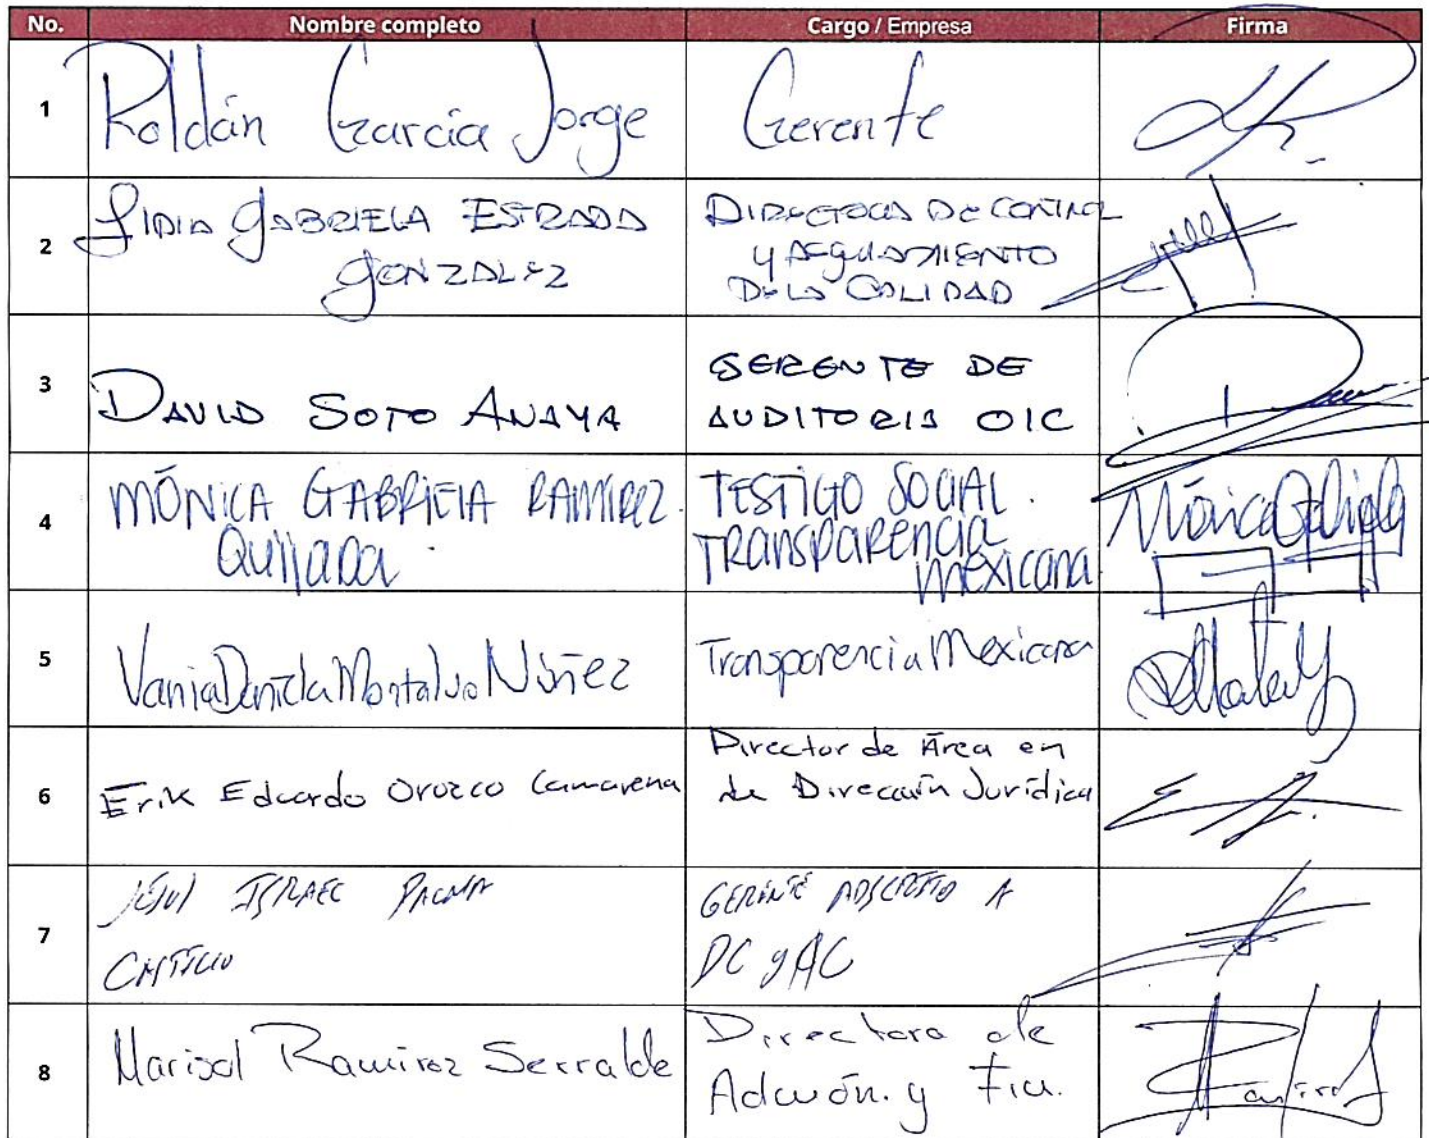 No. Nombre completo Cargo / Empresa Firma
1 Roldán García Jorge Gerente
2 Lidia Gabriela Estrada González Directora de Control
y Aseguramiento
De la Calidad
3 David Soto Anaya Gerente de
Auditoria OIC
4 Mónica Gabriela Ramírez Quijada. Testigo Social.
Transparencia
Mexicana
Mónica Gabriela
5 Vania Daniela Montalvo Núñez Transparencia Mexicana
6 Erik Eduardo Orozco Camarena Director de Área en
la Dirección Jurídica
7 Jesus Israel Palma
Castillo
Gerente Adscrito A
DC y AC
8 Marisol Ramirez Serralde Directora de
Admón. y Fin.